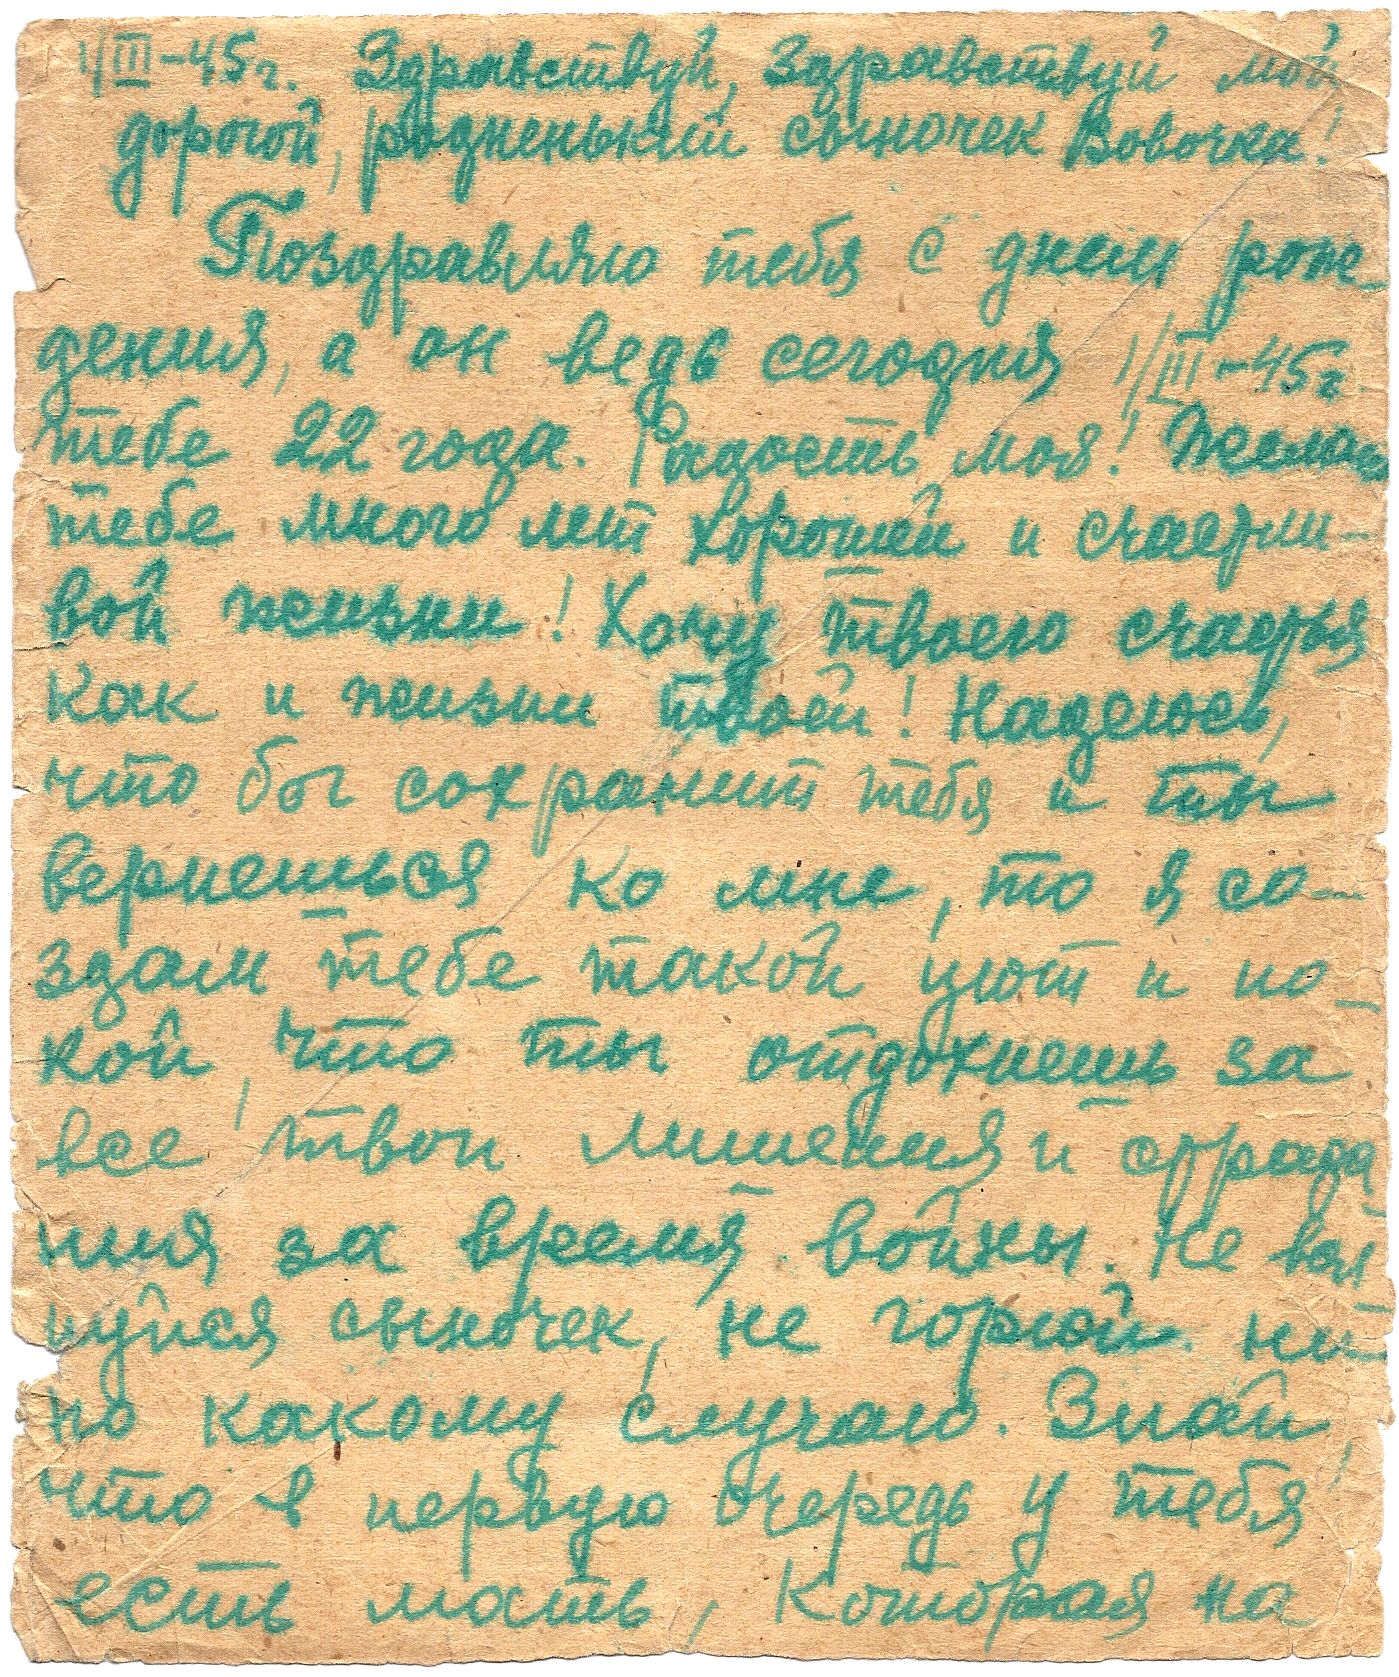 1/III-45г. Здравствуй, Здравствуй мой
дорогой, родненький сыночек Вовочка!
Поздравляю тебя с днем рож-
дения, а он ведь сегодня 1/III-45г.
тебе 22 года. Радость моя! Желаю
тебе много лет хорошей и счастли-
вой жизни! Хочу твоего счастья
как и жизни твоей! Надеюсь,
что бог сохранит тебя и ты
вернешься ко мне, то я со-
здам тебе такой уют и по-
кой, что ты отдохнешь за
все твои лишения и страда
ния за время войны. Не вол
нуйся сыночек, не горюй ни
по какому случаю. Знай,
что в первую очередь у тебя
есть мать, которая на